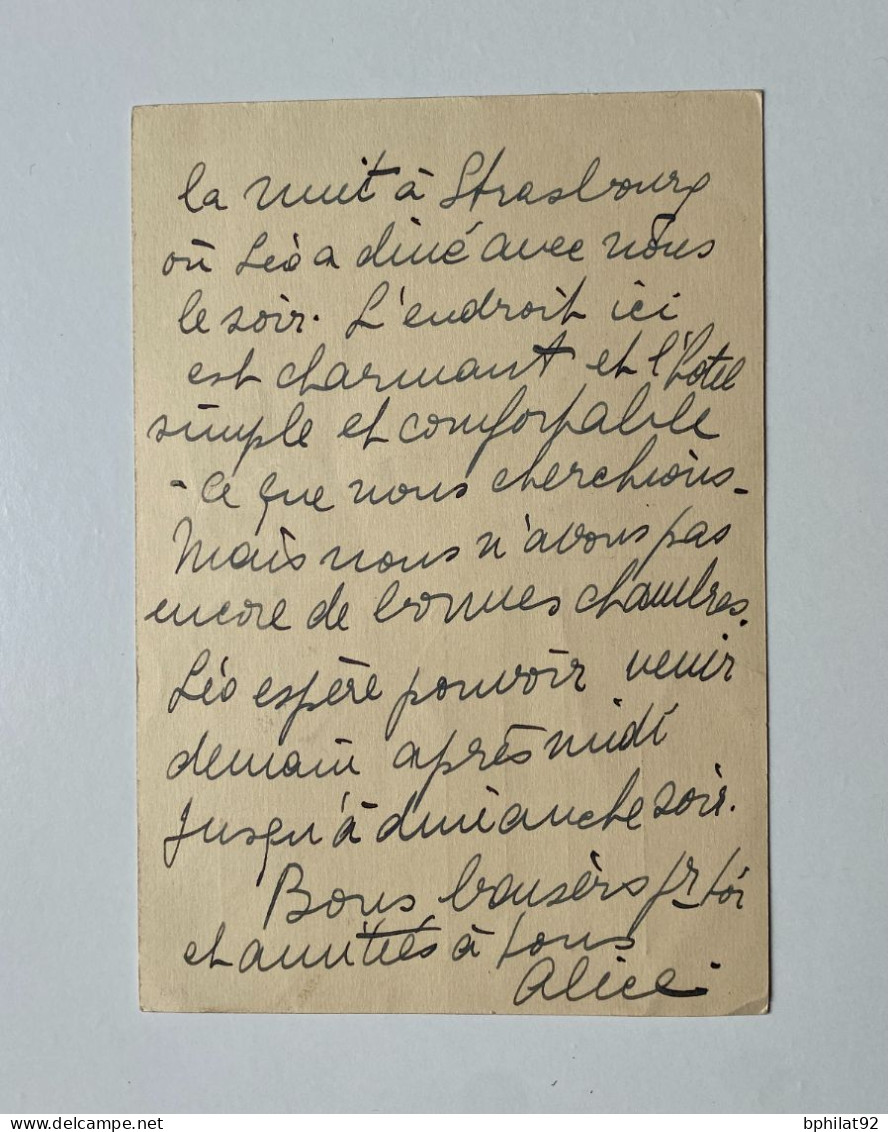 la nuit à Strasbourg
où Léo a diné avec nous
le soir. L'endroit ici
est charmant et l'hotel
simple et comfortable
- ce que nous cherchions -
Mais nous n'avons pas
encore de bonnes chambres.
Léo espère pouvoir venir
demain après midi
jusqu'à dimanche soir.
Bons baisers pr toi
et amitiés à tous
Alice.
delcampe.net
bphilat92